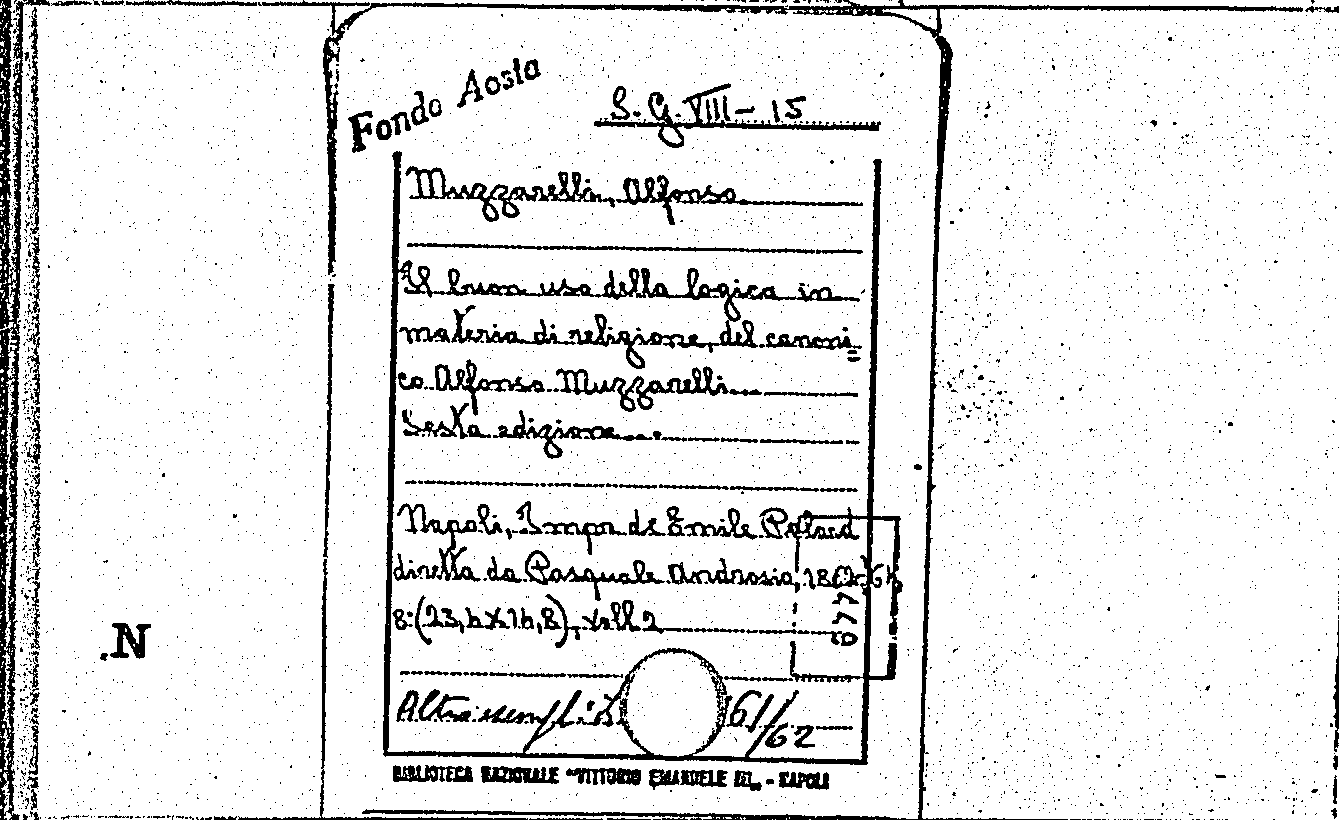 Fondo Aosta
S. G. VIII - 15
Muzzarelli, Alfonso
Il buon uso della logica in
materia di religione, del canoni=
co Alfonso Muzzarelli...
Sesta edizione....
Napoli, Impr de Emile
diretta da Pasquale Androsio, 1862-64
8:(23,6x16,8), voll 2
Altro esempl.: 61/62
N
BIBLIOTECA NAZIONALE "VITTORIO EMANUELE III„ - NAPOLI